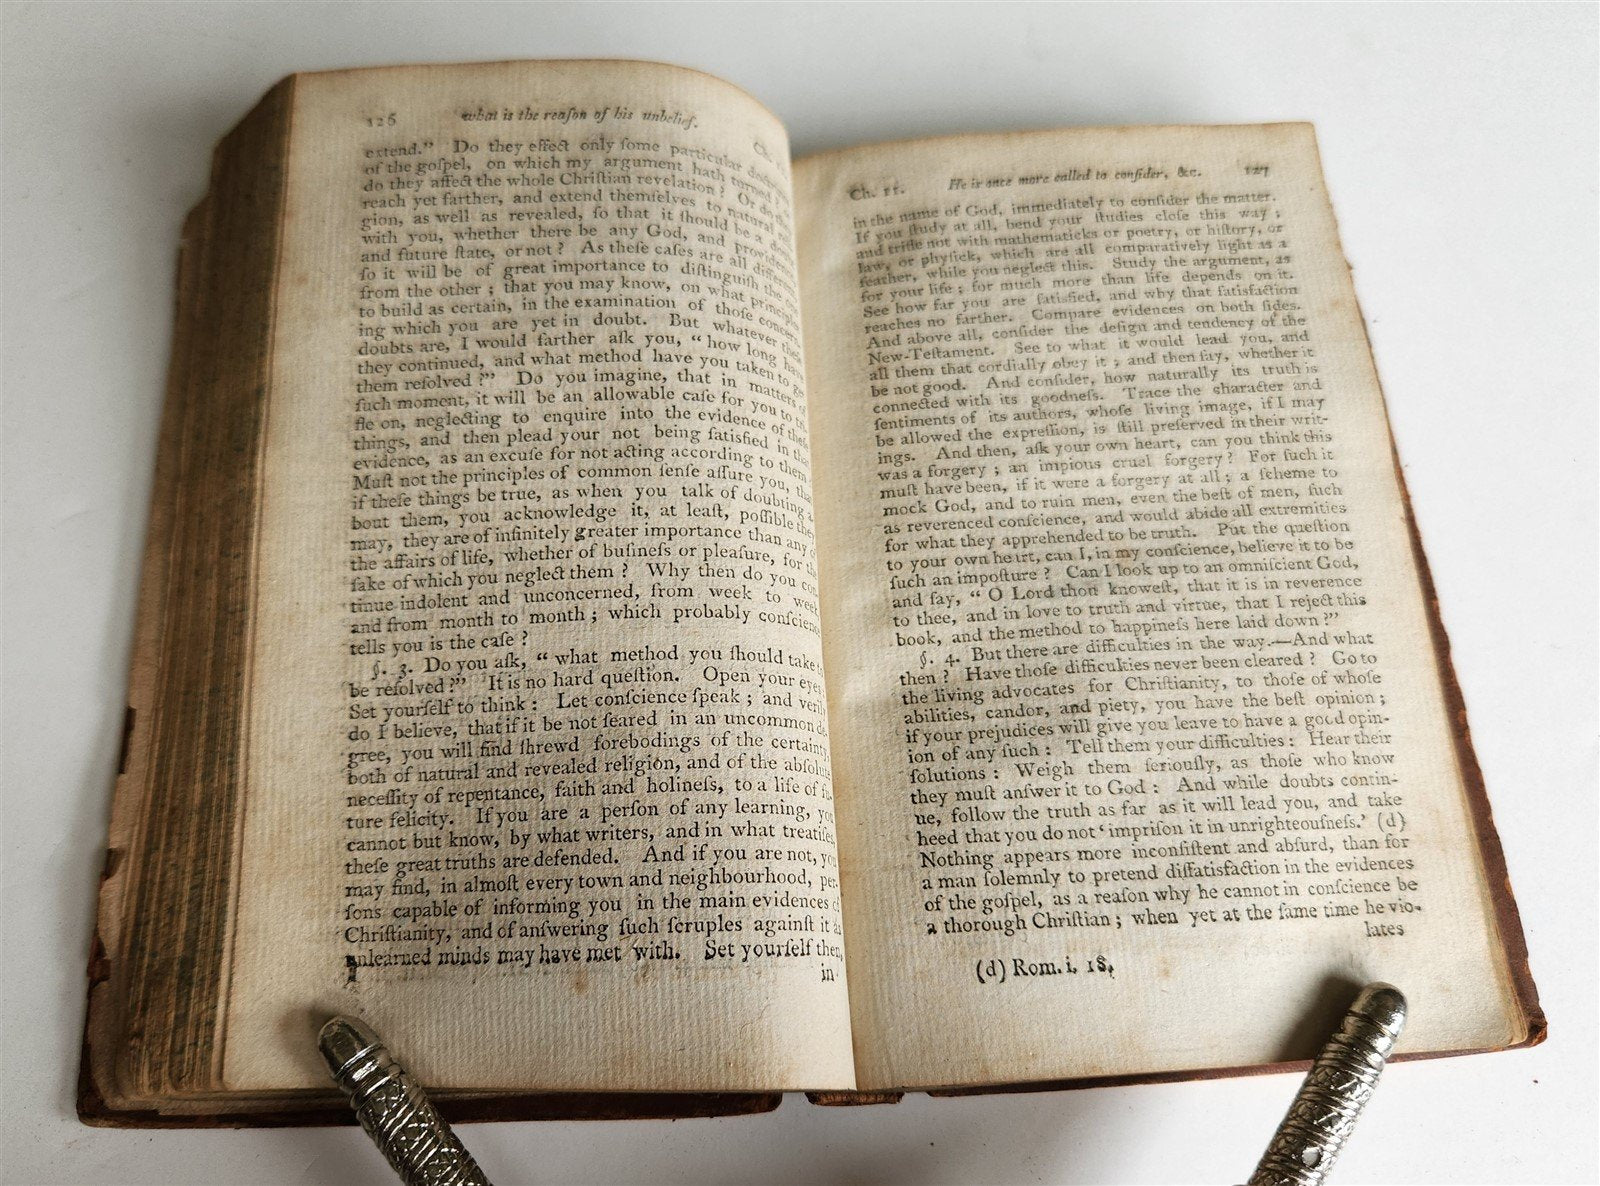 126 what is the reaſon of his unbelief.
Ch.
extend." Do they effect only ſome particular
of the goſpel, on which my argument hath turned?
do they affect the whole Chriſtian revelation? Or do
reach yet farther, and extend themſelves to natural
gion, as well as revealed, ſo that it ſhould be a
with you, whether there be any God, and providence
and future ſtate, or not? As theſe caſes are all
ſo it will be of great importance to diſtinguiſh the
from the other; that you may know, on what principles
to build as certain, in the examination of thoſe
ing which you are yet in doubt. But whatever theſe
doubts are, I would farther aſk you, "how long have
they continued, and what method have you taken to
them reſolved?" Do you imagine, that in matters of
ſuch moment, it will be an allowable caſe for you to
fle on, neglecting to enquire into the evidence of theſe
things, and then plead your not being ſatisfied in
evidence, as an excuſe for not acting according to them
Muſt not the principles of common ſenſe aſſure you,
if theſe things be true, as when you talk of doubting a
bout them, you acknowledge it, at leaſt, poſſible they
may, they are of infinitely greater importance than any
the affairs of life, whether of buſineſs or pleaſure, for
ſake of which you neglect them? Why then do you con
tinue indolent and unconcerned, from week to week
and from month to month; which probably conſcience
tells you is the caſe?
§. 3. Do you aſk, "what method you ſhould take
be reſolved?" It is no hard queſtion. Open your eyes
Set yourſelf to think: Let conſcience ſpeak; and verily
do I believe, that if it be not ſeared in an uncommon de
gree, you will find ſhrewd forebodings of the certainty
both of natural and revealed religion, and of the abſolute
neceſſity of repentance, faith and holineſs, to a life of fu-
ture felicity. If you are a perſon of any learning, you
cannot but know, by what writers, and in what treatiſes
theſe great truths are defended. And if you are not, you
may find, in almoſt every town and neighbourhood, per-
ſons capable of informing you in the main evidences of
Chriſtianity, and of anſwering ſuch ſcruples againſt it as
unlearned minds may have met with. Set yourſelf then,
in
Ch. 11. He is once more called to conſider, &c. 127
in the name of God, immediately to conſider the matter.
If you ſtudy at all, bend your ſtudies cloſe this way;
and trifle not with mathematicks or poetry, or hiſtory, or
law, or phyſick, which are all comparatively light as a
feather, while you neglect this. Study the argument, as
for your life; for much more than life depends on it.
See how far you are ſatisfied, and why that ſatisfaction
reaches no farther. Compare evidences on both ſides.
And above all, conſider the deſign and tendency of the
New-Teſtament. See to what it would lead you, and
all them that cordially obey it; and then ſay, whether it
be not good. And conſider, how naturally its truth is
connected with its goodneſs. Trace the character and
ſentiments of its authors, whoſe living image, if I may
be allowed the expreſſion, is ſtill preſerved in their writ-
ings. And then, aſk your own heart, can you think this
was a forgery; an impious cruel forgery? For ſuch it
muſt have been, if it were a forgery at all; a ſcheme to
mock God, and to ruin men, even the beſt of men, ſuch
as reverenced conſcience, and would abide all extremities
for what they apprehended to be truth. Put the queſtion
to your own heart, can I, in my conſcience, believe it to be
ſuch an impoſture? Can I look up to an omniſcient God,
and ſay, "O Lord thou knoweſt, that it is in reverence
to thee, and in love to truth and virtue, that I reject this
book, and the method to happineſs here laid down?"
§. 4. But there are difficulties in the way.—And what
then? Have thoſe difficulties never been cleared? Go to
the living advocates for Chriſtianity, to thoſe of whoſe
abilities, candor, and piety, you have the beſt opinion;
if your prejudices will give you leave to have a good opin-
ion of any ſuch: Tell them your difficulties: Hear their
ſolutions: Weigh them ſeriouſly, as thoſe who know
they muſt anſwer it to God: And while doubts contin-
ue, follow the truth as far as it will lead you, and take
heed that you do not 'impriſon it in unrighteouſneſs.' (d)
Nothing appears more inconſiſtent and abſurd, than for
a man ſolemnly to pretend diſſatisfaction in the evidences
of the goſpel, as a reaſon why he cannot in conſcience be
a thorough Chriſtian; when yet at the ſame time he vio-
lates
(d) Rom. i. 18.